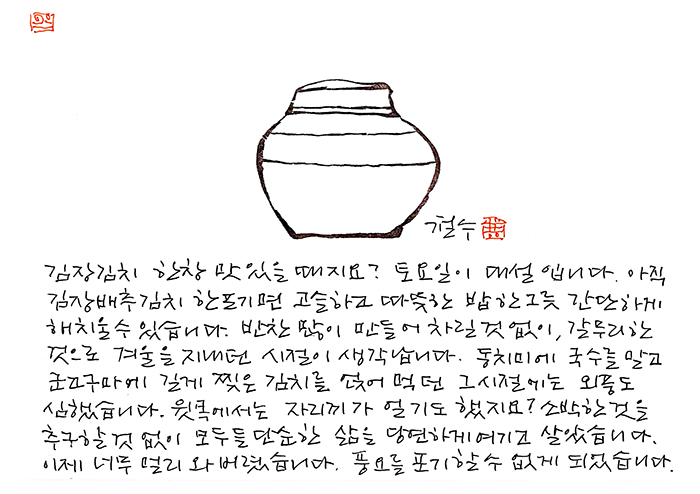 철수
김장김치 한창 맛있을 때지요? 토요일이 대설입니다. 아직
김장배추김치 한포기면 고슬하고 따뜻한 밥 한그릇 간단하게
해치울 수 있습니다. 반찬 많이 만들어 차릴 것 없이, 갈무리한
것으로 겨울을 지내던 시절이 생각납니다. 동치미에 국수를 말고
군고구마에 길게 찢은 김치를 얹어 먹던 그시절에는 외풍도
심했습니다. 윗목에서는 자리끼가 얼기도 했지요? 소박한 것을
추구할 것 없이 모두들 단순한 삶을 당연하게 여기고 살았습니다.
이제 너무 멀리 와 버렸습니다. 풍요를 포기할 수 없게 되었습니다.